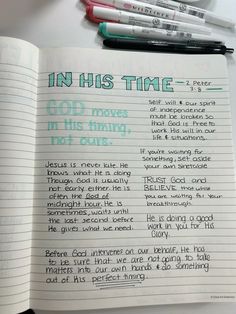 IN HIS TIME - 2 Peter 3:8
GOD
moves
in His timing,
not ours.
Jesus is never late. He
knows what He is doing
Though God is usually
not early either. He is
often the God of
midnight hour. He is
sometimes, waits until
the last second before
He gives what we need.
self will & our spirit
of independence
must be broken so
that God is free to
work His will in our
life & situations.
If you're waiting for
something, set aside
your own timetable
TRUST God and
BELIEVE that while
you are waiting for your
breakthrough.
He is doing a good
work in you for His
Glory.
Before God intervenes on our behalf, He has
to be sure that we are not going to take
matters into our own hands & do something
out of His perfect timing.